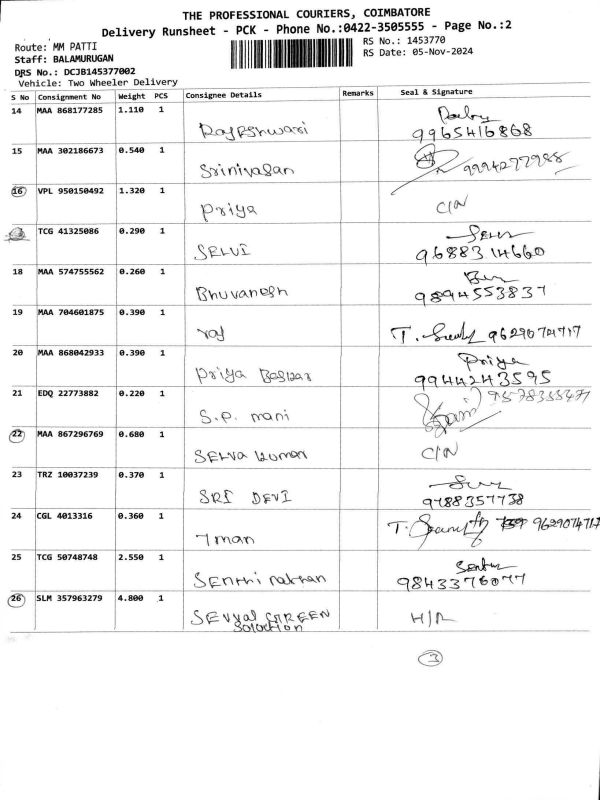 THE PROFESSIONAL COURIERS, COIMBATORE
Delivery Runsheet - PCK - Phone No.:0422-3505555 - Page No.:2
Route: MM PATTI
RS No.: 1453770
Staff: BALAMURUGAN
RS Date: 05-Nov-2024
DRS No.: DCJB145377002
Vehicle: Two Wheeler Delivery
S No Consignment No Weight PCS Consignee Details Remarks Seal & Signature
14 MAA 868177285 1.110 1
Rajeshwari 9965416868
15 MAA 302186673 0.540 1
Srinivasan 9994277988
16 VPL 950150492 1.320 1
Priya C/N
TCG 41325086 0.290 1
SELVI 9688314660
18 MAA 574755562 0.260 1
Bhuvanesh 9894553837
19 MAA 704601875 0.390 1
raj T. 9629074717
20 MAA 868042933 0.390 1 Priya
Priya Baskar 9944243595
21 EDQ 22773882 0.220 1
S.P. mani
22 MAA 867296769 0.680 1
Selva kumar C/N
23 TRZ 10037239 0.370 1
SRI DEVI 9788357738
24 CGL 4013316 0.360 1
T. 9629074717
25 TCG 50748748 2.550 1
Senthi nathan 9843376077
26 SLM 357963279 4.800 1
GREEN
solution
3